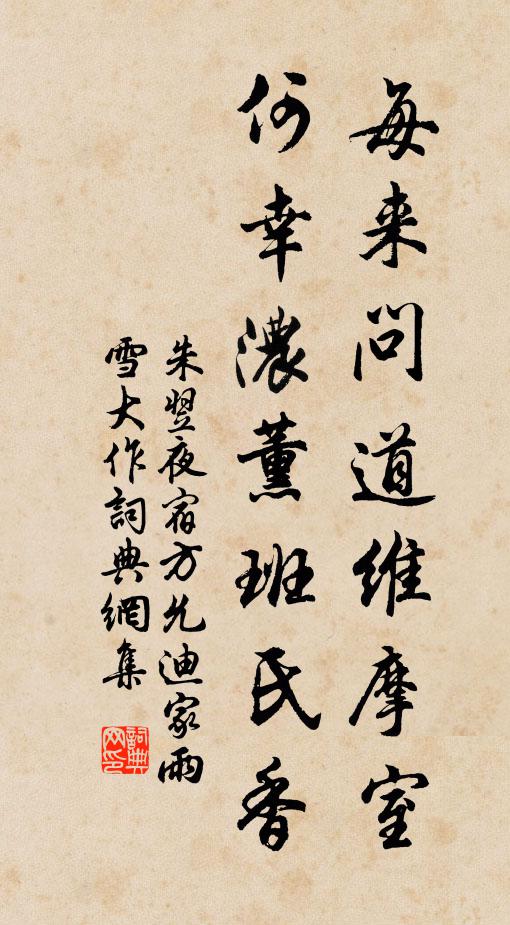 每来问道維摩室
何幸濃薰班氏香
朱翌夜宿方允迪家雨
雪大作詞典網集
詞典
网印